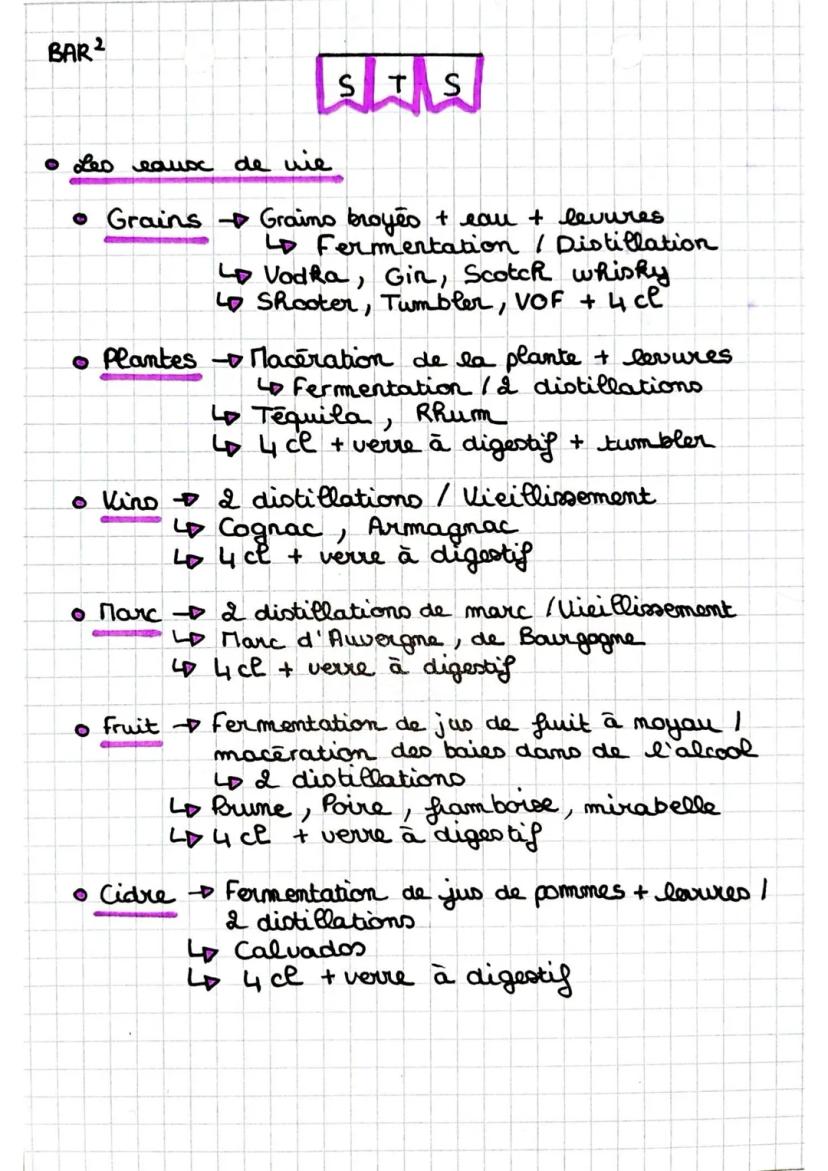 BAR²
S T S
• Les eaux de vie
• Grains → Grains broyés + eau + levures
↳ Fermentation / Distillation
↳ Vodka, Gin, Scotch whisky
↳ Shooter, Tumbler, VOF + 4 cl
• Plantes → Macération de la plante + levures
↳ Fermentation / 2 distillations
↳ Téquila, Rhum
↳ 4 cl + verre à digestif + tumbler
• Vins → 2 distillations / Vieillissement
↳ Cognac, Armagnac
↳ 4 cl + verre à digestif
• Marc → 2 distillations de marc / Vieillissement
↳ Marc d'Auvergne, de Bourgogne
↳ 4 cl + verre à digestif
• Fruit → Fermentation de jus de fruit à noyau /
macération des baies dans de l'alcool
↳ 2 distillations
↳ Prune, Poire, framboise, mirabelle
↳ 4 cl + verre à digestif
• Cidre → Fermentation de jus de pommes + levures /
2 distillations
↳ Calvados
↳ 4 cl + verre à digestif